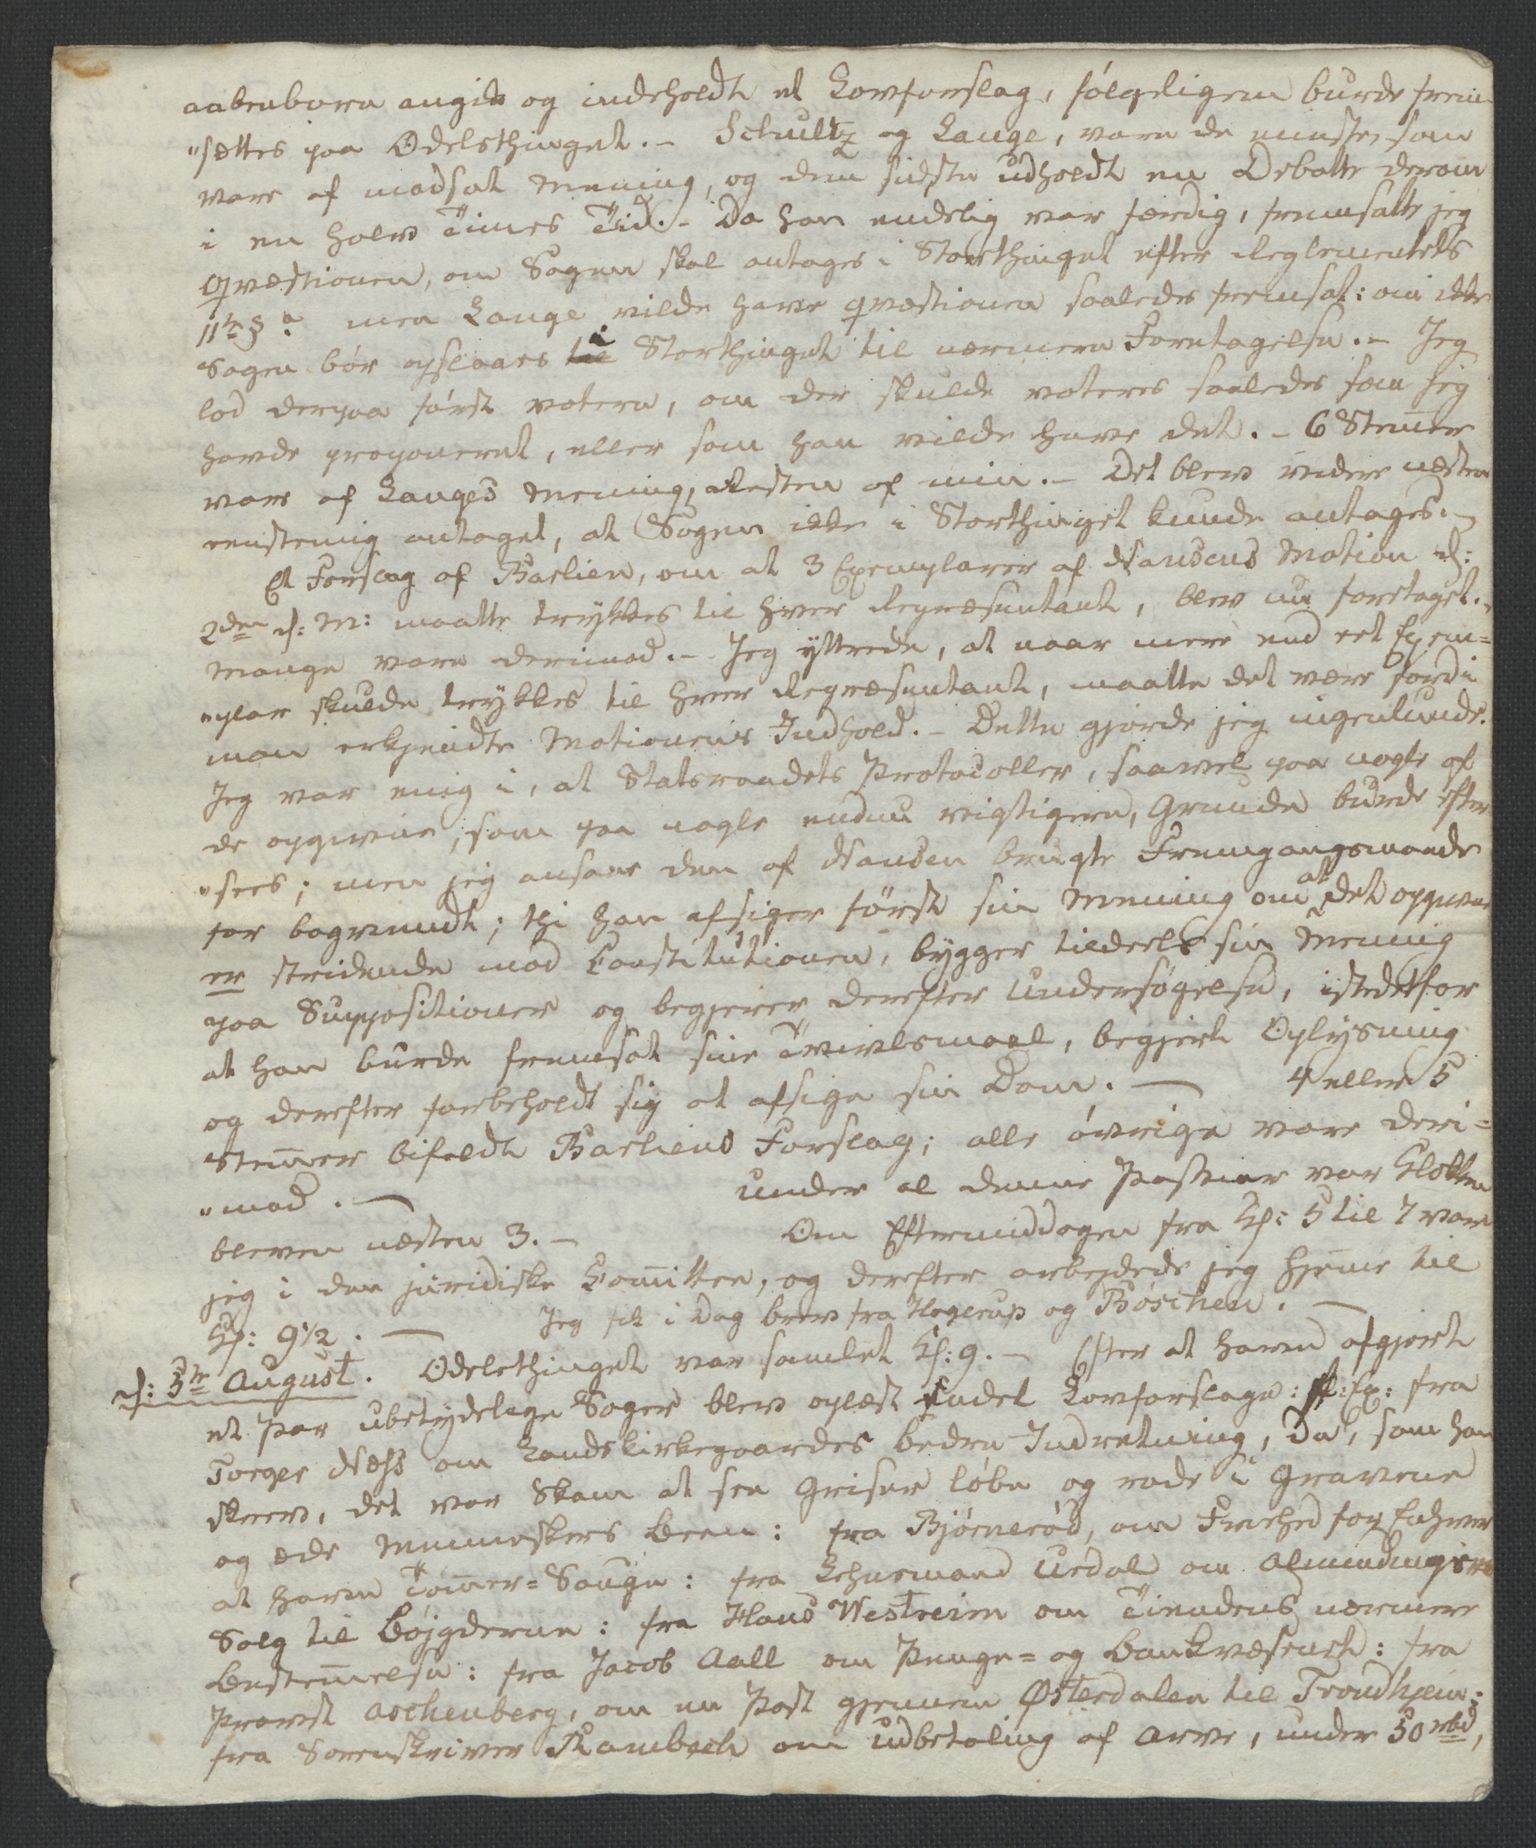 aabenbare angik og indeholdt et Lovforslag, følgeligen burde frem
"sættes paa Odelsthinget. - Schultz og Lange, vare de eneste som
vare af modsat Mening, og den sidste udholdt en Debatte derom
i en halv Times Tid. - Da han endelig var færdig, fremsatte jeg
Qvæstionen, om Sagen skal antages i Storthinget efter Reglementets
11te § men Lange vilde have qvæstionen saaledes fremsat: om ikke
Sagen bør opslaaes i Storthinget til nærmere Foretagelse. - Jeg
lod derpaa først votere, om der skulde voteres saaledes som jeg
havde proponeret, eller som han vilde have det. - 6 Stemmer
vare af Langes Mening, Resten af min. - Det blev videre næsten
eenstemig antaget, at Sagen ikke i Storthinget kunde antages. -
Et Forslag af Barlien, om at 3 Exemplarer af Nansens Motion d:
2den d: M: maatte trykkes til hver Repræsentant, blev nu foretaget. -
Mange vare derimod. - Jeg yttrede, at naar mere end eet Exem=
"plar skulde trykkes til hver Repræsentant, maatte det være fordi
man erkjendte Motionens Indhold. - Dette gjorde jeg ingenlunde.
Jeg var enig i, at Statsraadets Protocoller, saavel paa nogle af
de opgivne, som paa nogle endnu vigtigere, Grunde burde efter
"sees; men jeg ansaae den af Nansen brugte Fremgangsmaade
for bagvendt; thi han afsiger først sin Mening om at det opgivne
er stridende mod Constitutionen, bygger tildeels sin Mening
paa Suppositioner og begjerer derefter Undersøgelse, istedetfor
at han burde fremsat sine Tvivlsmaal, begjert Oplysning
og derefter forbeholdt sig at afsige sin Dom. - 4 eller 5
Stemmer bifaldt Barliens Forslag; alle øvrige vare deri=
"mod. - Under al denne Passiar var Klokken
bleven næsten 3. - Om Eftermiddagen fra Kl: 5 til 7 var
jeg i den juridiske Committee, og derefter arbejdede jeg hjemme til
Kl: 9 1/2. - Jeg fik i Dag brev fra Hagerup og Böschen. -
d: 5te August. Odelsthinget var samlet Kl: 9. - Efter at have afgjort
et Par ubetydelige Sager blev oplæst endel Lovforslage: f: Ex: fra
Torger Næss om Landskirkegaardes bedre Indretning, da, som han
skrev, det var Skam at see Grisene løbe og rode i Gravene
og æde Menneskers Been: fra Bjørnerød, om Friehed for Enhver
at have Tømmer=Sauge: fra Lehnsmand Uedal om Almindingers
Salg til Bøjgderne: fra Hans Westreim om Tiendens nærmere
Bestemmelse: fra Jacob Aall om Penge= og Bankvæsenet: fra
Provst Aschenberg, om en Post gjennem Østerdalen til Trondhjem:
fra Sorenskriver Rambech om Udbetaling af Arve, under 50 rbd,